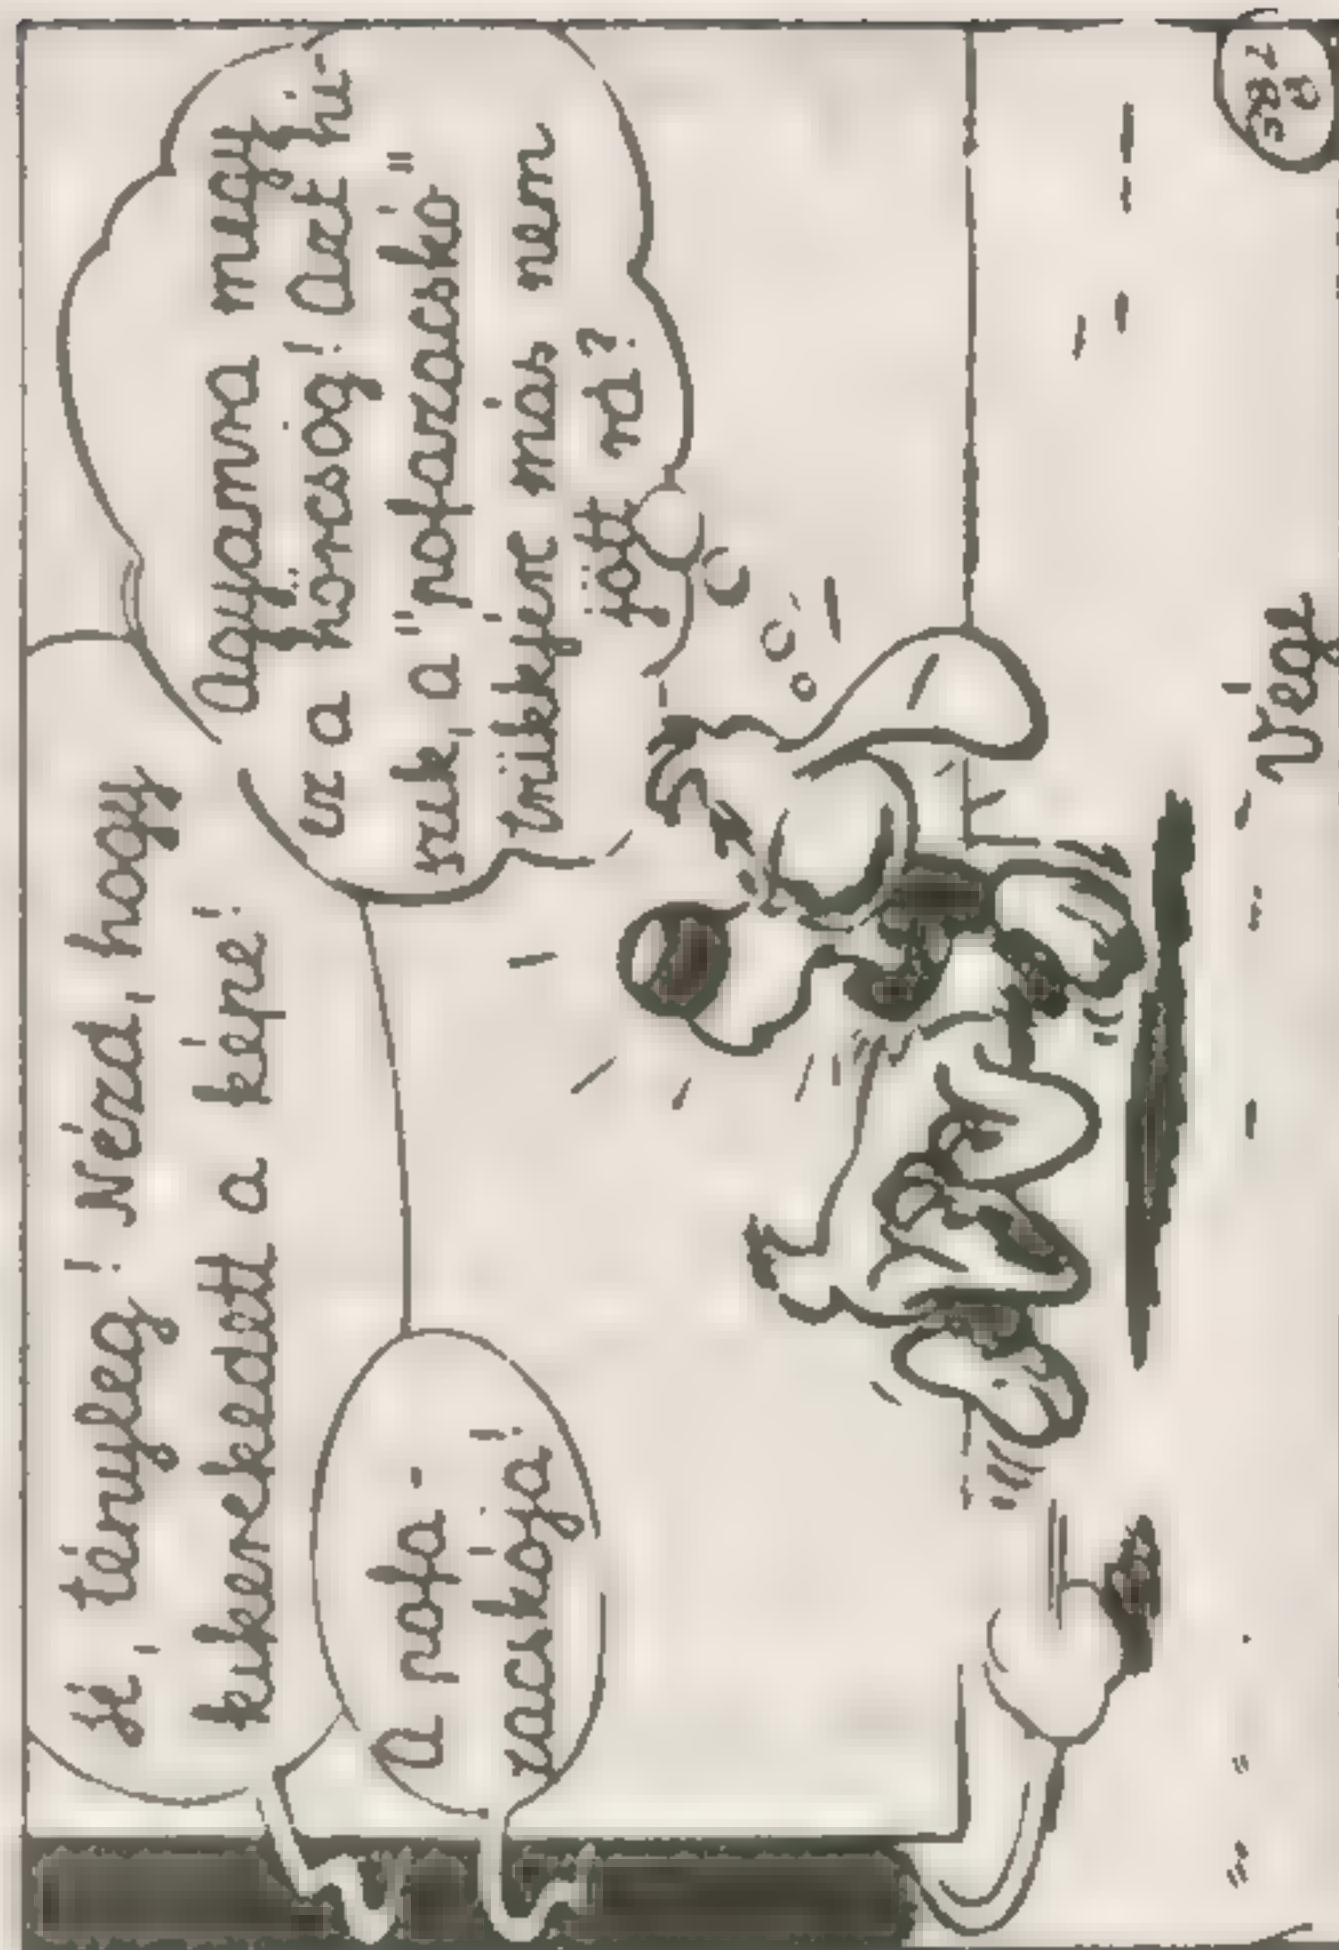 Jé, tényleg! Nézd, hogy
kikerekedett a képe!
A pofa-
zacskója!
Agyamra megy
ez a hörcsög! Azt hi-
szik, a "pofazacskó"
trükkjére más nem
jött rá?
Vége